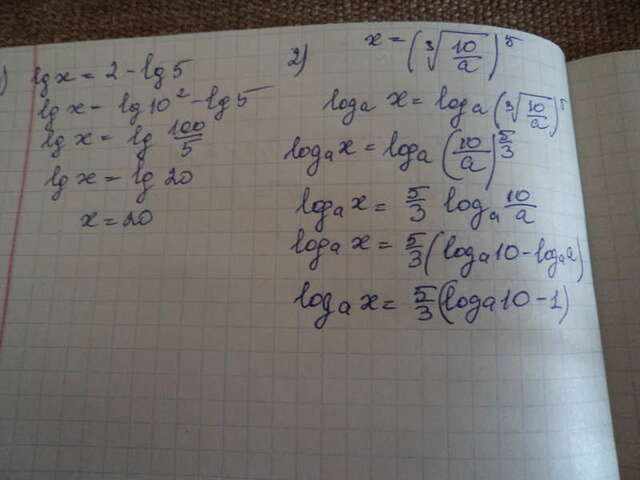 ) lg x = 2 - lg 5
lg x - lg 10² - lg 5
lg x = lg 100/5
lg x = lg 20
x = 20
2) x = (∛(10/a))⁵
logₐ x = logₐ (∛(10/a))⁵
logₐ x = logₐ (10/a)^(5/3)
logₐ x = 5/3 logₐ 10/a
logₐ x = 5/3 (logₐ 10 - logₐ a)
logₐ x = 5/3 (logₐ 10 - 1)